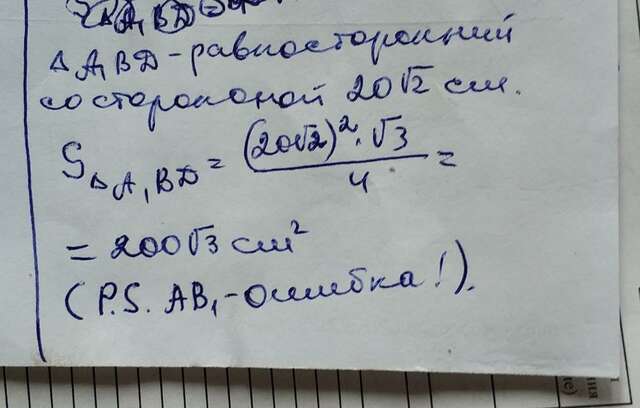 Δ A₁BD - равносторонний
со сторококой 20√2 см.
S Δ A₁BD = (20√2)²·√3 / 4 =
= 200√3 см²
(P.S. AB₁ - ошибка!).